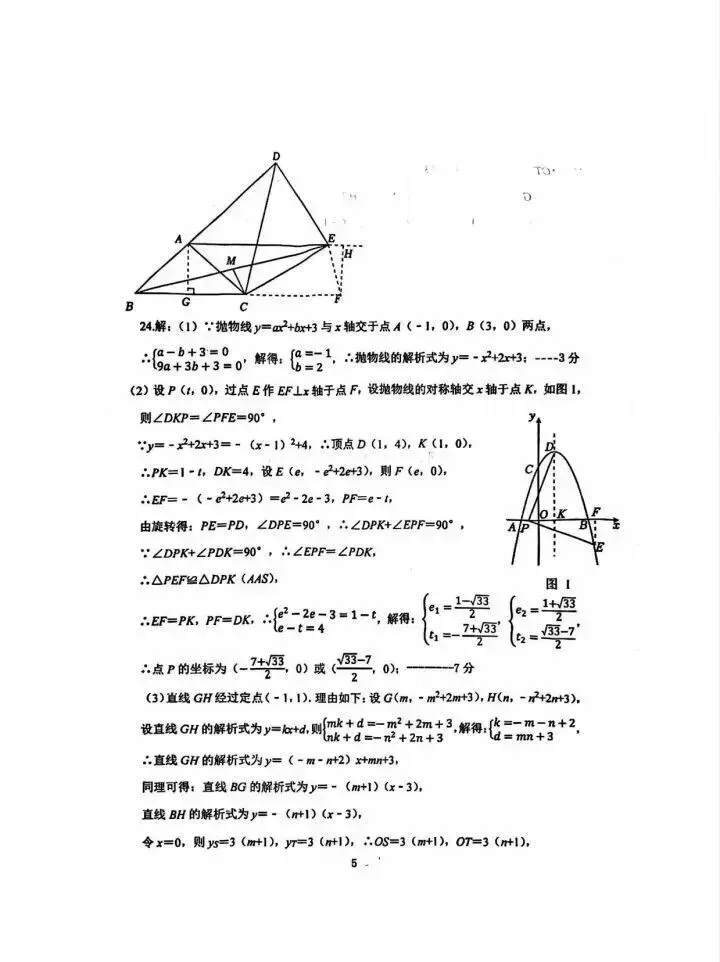 D
A
E
H
M
B
G
C
F
24.解：（1）∵抛物线y＝ax²+bx+3与x轴交于点A（-1，0），B（3，0）两点，
∴{a－b＋3＝0 9a＋3b＋3＝0，解得：{a＝－1 b＝2，∴抛物线的解析式为y＝-x²+2x+3；----3分
（2）设P（t，0），过点E作EF⊥x轴于点F，设抛物线的对称轴交x轴于点K，如图1，
则∠DKP＝∠PFE＝90°，
∵y＝-x²+2x+3＝-（x-1）²+4，∴顶点D（1，4），K（1，0），
∴PK＝1-t，DK＝4，设E（e，-e²+2e+3），则F（e，0），
∴EF＝-（-e²+2e+3）＝e²-2e-3，PF＝e-t，
由旋转得：PE＝PD，∠DPE＝90°，∴∠DPK+∠EPF＝90°，
∵∠DPK+∠PDK＝90°，∴∠EPF＝∠PDK，
∴△PEF≌△DPK（AAS），
y
D
C
O
K
F
A
P
B
x
E
图 1
∴EF＝PK，PF＝DK，∴{e²－2e－3＝1－t e－t＝4，解得：{e₁＝(1－√33)/2 t₁＝－(7＋√33)/2，{e₂＝(1＋√33)/2 t₂＝(√33－7)/2，
∴点P的坐标为（－(7＋√33)/2，0）或（(√33－7)/2，0）；————7分
（3）直线GH经过定点（-1，1）.理由如下：设G(m，-m²+2m+3)，H(n，-n²+2n+3)，
设直线GH的解析式为y＝kx+d，则{mk＋d＝－m²＋2m＋3 nk＋d＝－n²＋2n＋3，解得：{k＝－m－n＋2 d＝mn＋3，
∴直线GH的解析式为y＝（-m-n+2）x+mn+3，
同理可得：直线BG的解析式为y＝-（m+1）（x-3），
直线BH的解析式为y＝-（n+1）（x-3），
令x＝0，则yS＝3（m+1），yT＝3（n+1），∴OS＝3（m+1），OT＝3（n+1），
5